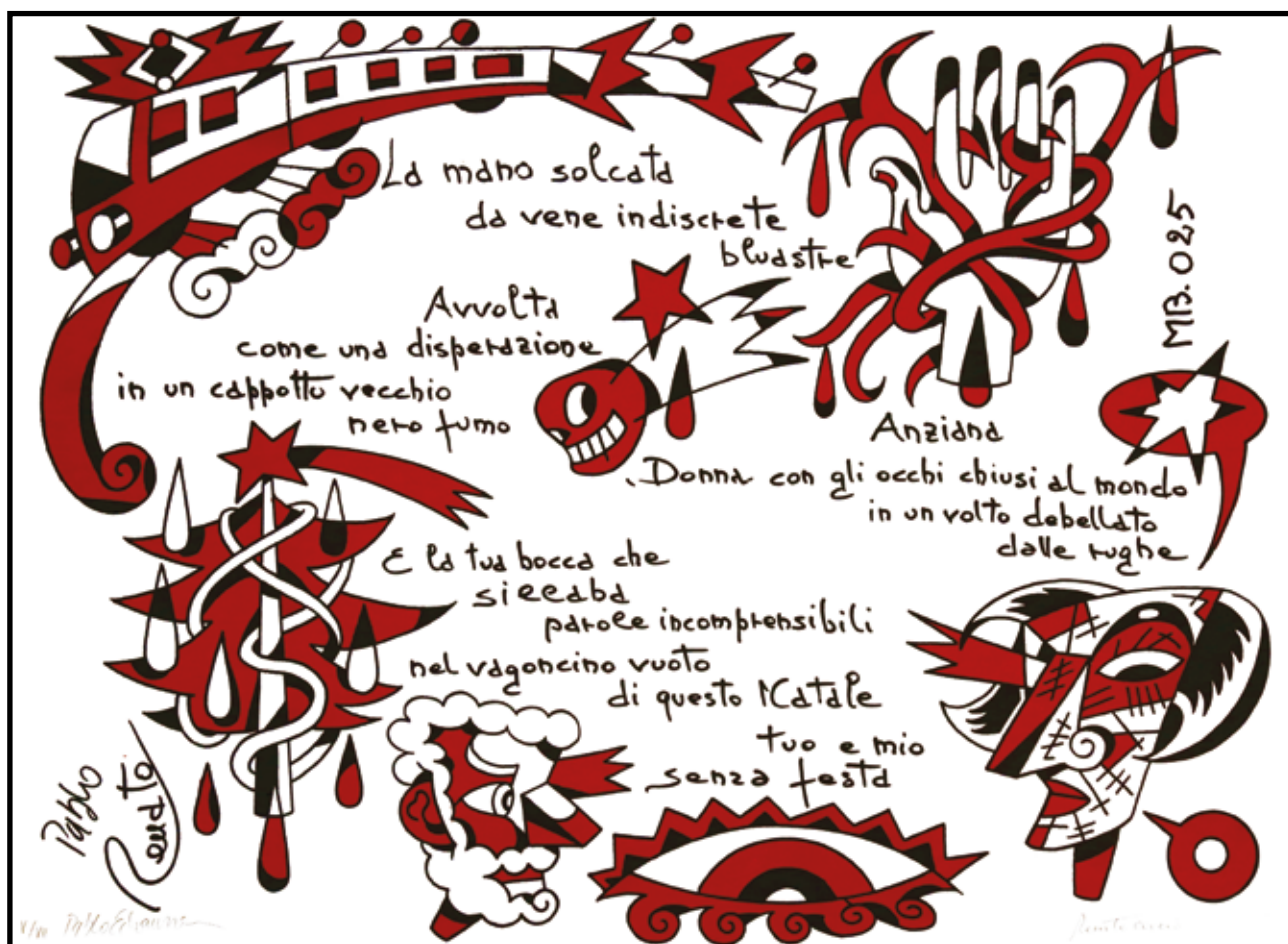 La mano solcata
da vene indiscrete
bluastre
Avvolta
come una disperazione
in un cappotto vecchio
nero fumo
Anziana
Donna con gli occhi chiusi al mondo
in un volto debellato
dalle rughe
E la tua bocca che
siccaba
parole incomprensibili
nel vagoncino vuoto
di questo Natale
tuo e mio
senza festa
MB.025
Pablo
Renato